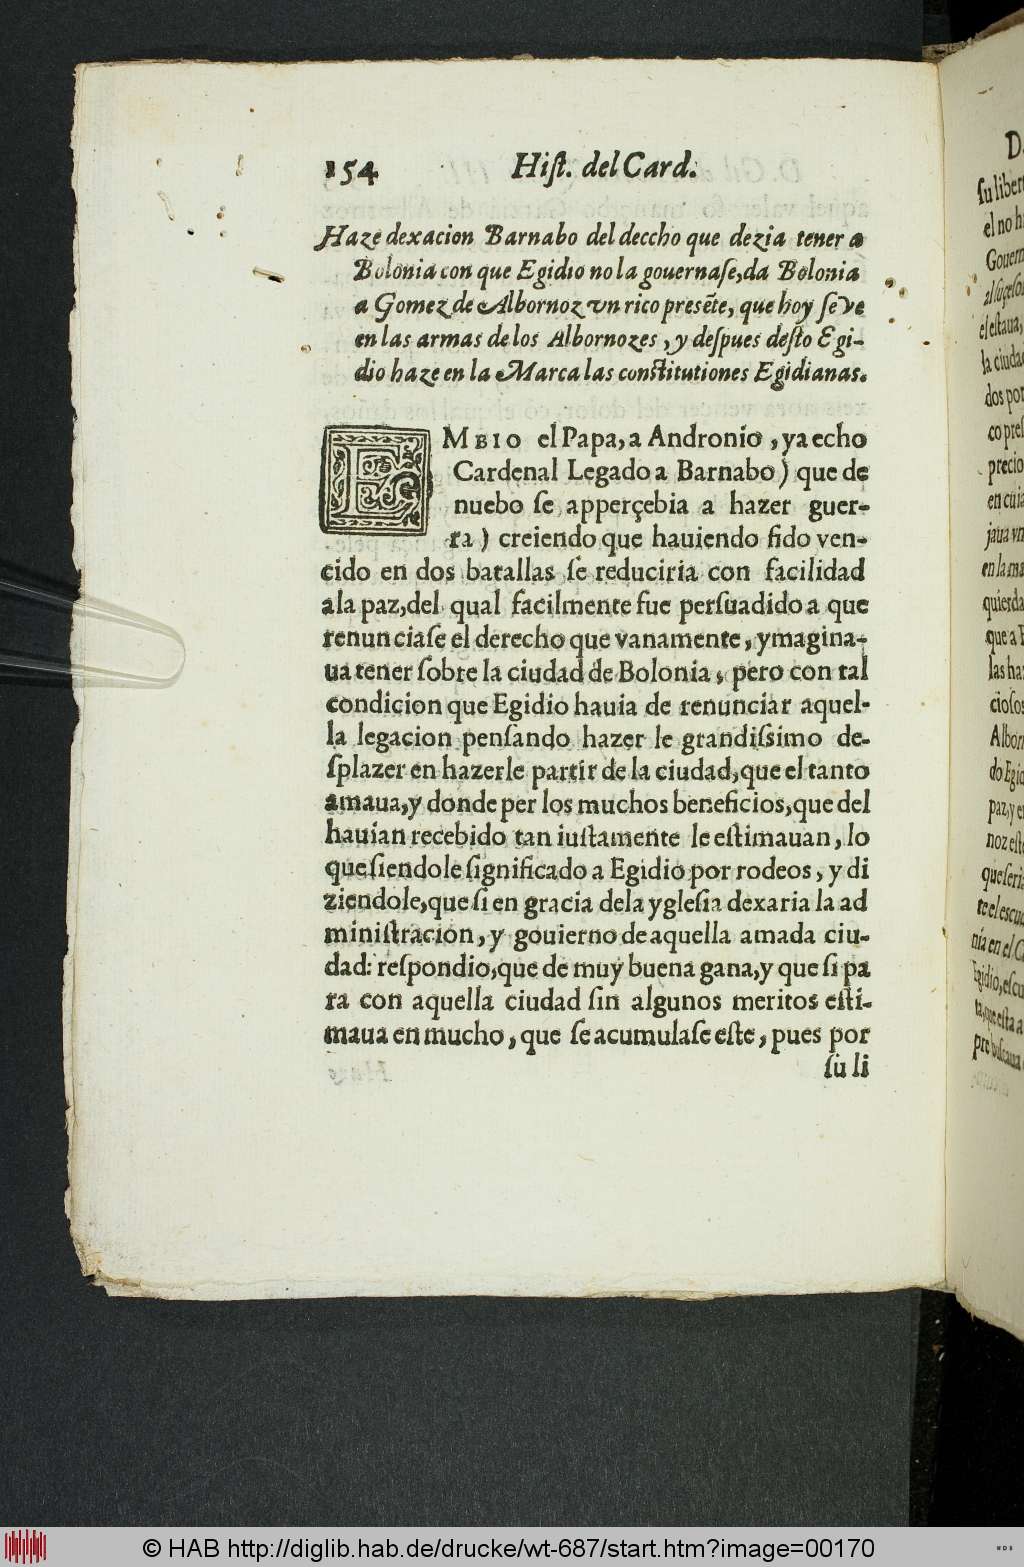 154 Hiſt. del Card.
Haze dexacion Barnabo del deccho que dezia tener a
Bolonia con que Egidio no la gouernaſe, da Bolonia
a Gomez de Albornoz vn rico preſẽte, que hoy ſe ve
en las armas de los Albornozes, y deſpues deſto Egi-
dio haze en la Marca las conſtitutiones Egidianas.
EMBIO el Papa, a Andronio, ya echo
Cardenal Legado a Barnabo) que de
nuebo ſe apperçebia a hazer guer-
ra) creiendo que hauiendo ſido ven-
cido en dos batallas ſe reduciria con facilidad
ala paz, del qual facilmente fue perſuadido a que
renunciaſe el derecho que vanamente, ymagina-
ua tener ſobre la ciudad de Bolonia, pero con tal
condicion que Egidio hauia de renunciar aquel-
la legacion penſando hazer le grandiſsimo de-
ſplazer en hazerle partir de la ciudad, que el tanto
amaua, y donde per los muchos beneficios, que del
hauian recebido tan iuſtamente le eſtimauan, lo
que ſiendole ſignificado a Egidio por rodeos, y di
ziendole, que ſi en gracia dela ygleſia dexaria la ad
miniſtracion, y gouierno de aquella amada ciu-
dad: reſpondio, que de muy buena gana, y que ſi pa
ra con aquella ciudad ſin algunos meritos eſti-
maua en mucho, que ſe acumulaſe eſte, pues por
ſu li
ſu libert
el no h
Gouern
el eſtaua,
la ciudad
dos por
co preſ
precio
en cuia
jaua vn
en la ma
quierda
que a
las ha
cioſos
Albor
do Egid
paz, y e
noz eſt
que ſeri
te el escu
nia en el C
Egidio, eſcu
ta, que eſta a
pre buſcaua
© HAB http://diglib.hab.de/drucke/wt-687/start.htm?image=00170